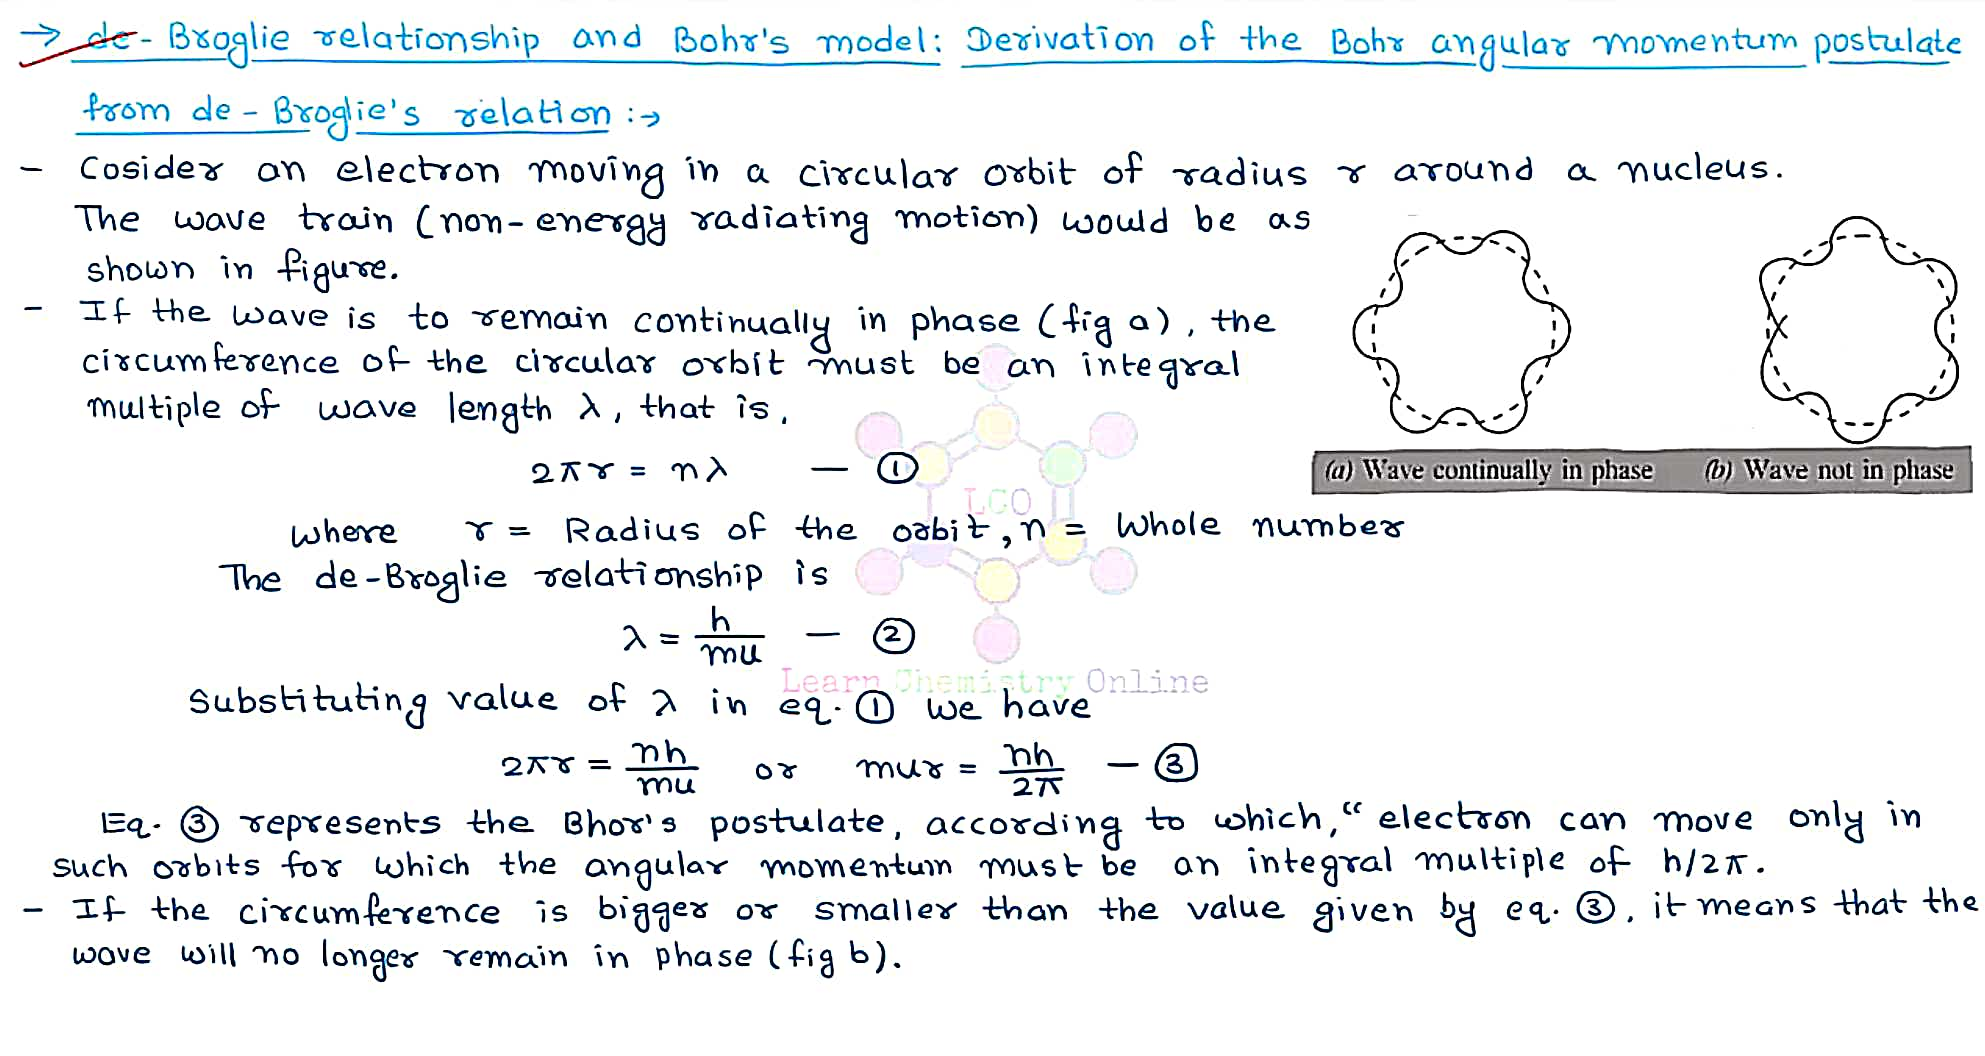 → de-Broglie relationship and Bohr's model: Derivation of the Bohr angular momentum postulate
from de-Broglie's relation :→
- Cosider an electron moving in a circular orbit of radius r around a nucleus.
The wave train (non-energy radiating motion) would be as
shown in figure.
- If the wave is to remain continually in phase (fig a), the
circumference of the circular orbit must be an integral
multiple of wave length λ, that is,
2πr = nλ — ①
(a) Wave continually in phase (b) Wave not in phase
LCO
where r = Radius of the orbit, n = Whole number
The de-Broglie relationship is
λ = h/mu — ②
Learn Chemistry Online
Substituting value of λ in eq. ① we have
2πr = nh/mu or mur = nh/2π — ③
Eq. ③ represents the Bhor's postulate, according to which, “ electron can move only in
such orbits for which the angular momentum must be an integral multiple of h/2π.
- If the circumference is bigger or smaller than the value given by eq. ③, it means that the
wave will no longer remain in phase (fig b).